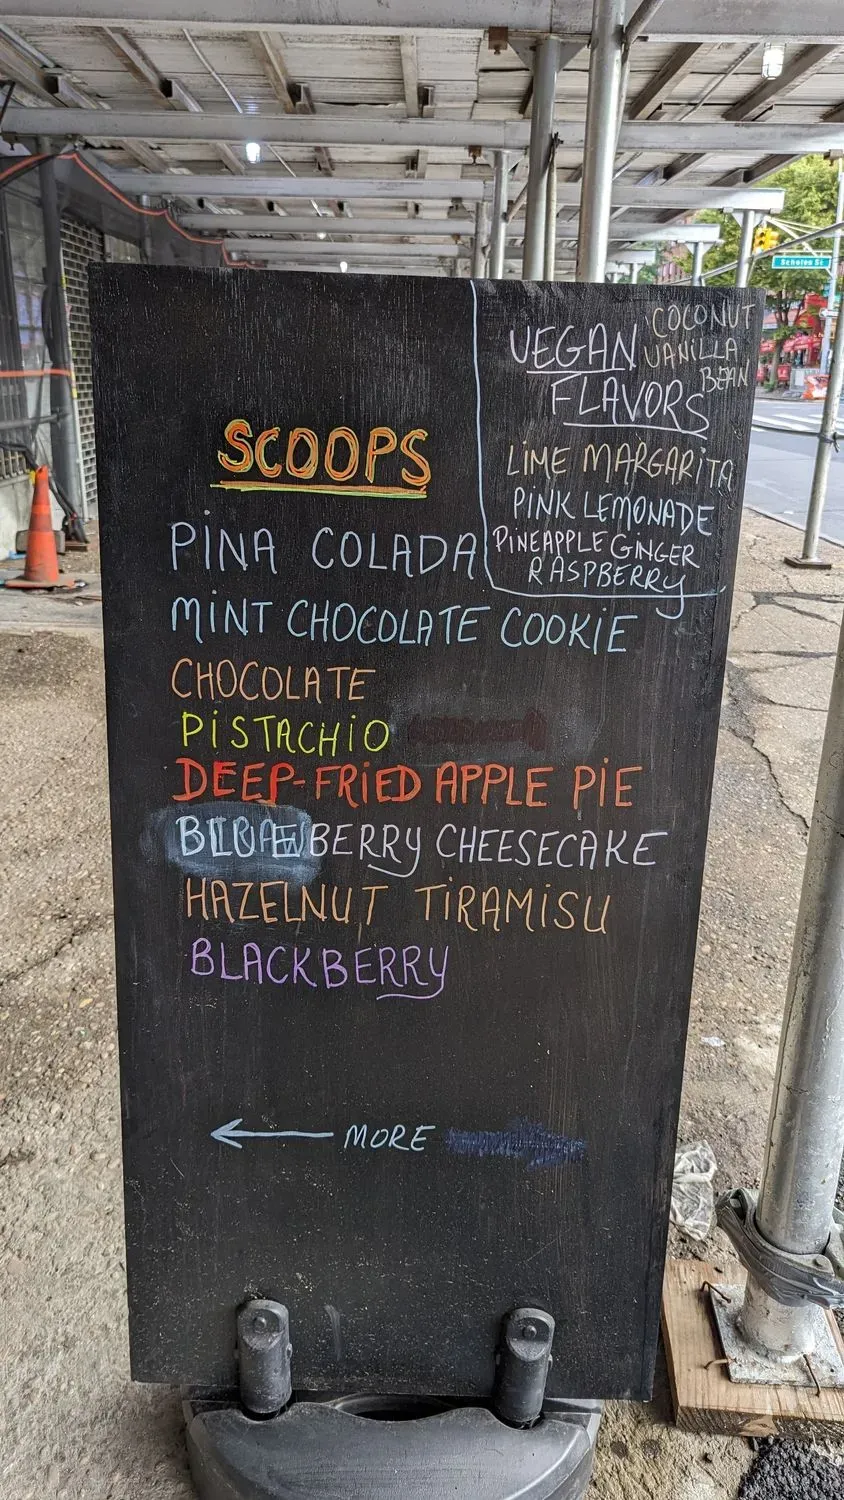 SCOOPS
PINA COLADA
MINT CHOCOLATE COOKIE
CHOCOLATE
PISTACHIO
DEEP-FRIED APPLE PIE
BERRY CHEESECAKE
HAZELNUT TIRAMISU
BLACKBERRY
← MORE
VEGAN
FLAVORS
COCONUT
VANILLA
BEAN
LIME MARGARITA
PINK LEMONADE
PINEAPPLE GINGER
RASPBERRY
Scholes St